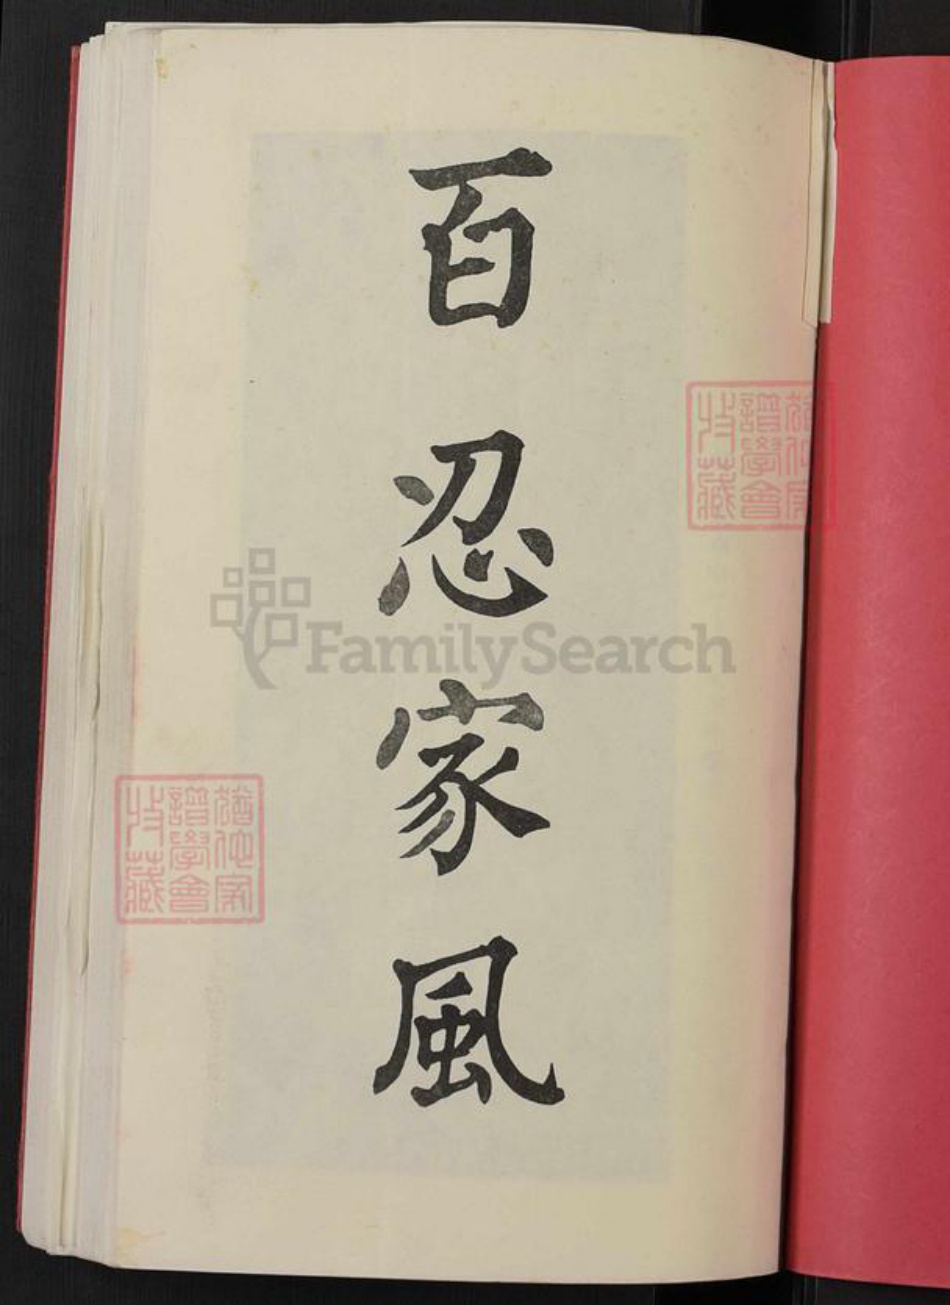 百忍家風
猶他家
譜學會
收藏
猶他家
譜學會
收藏
FamilySearch